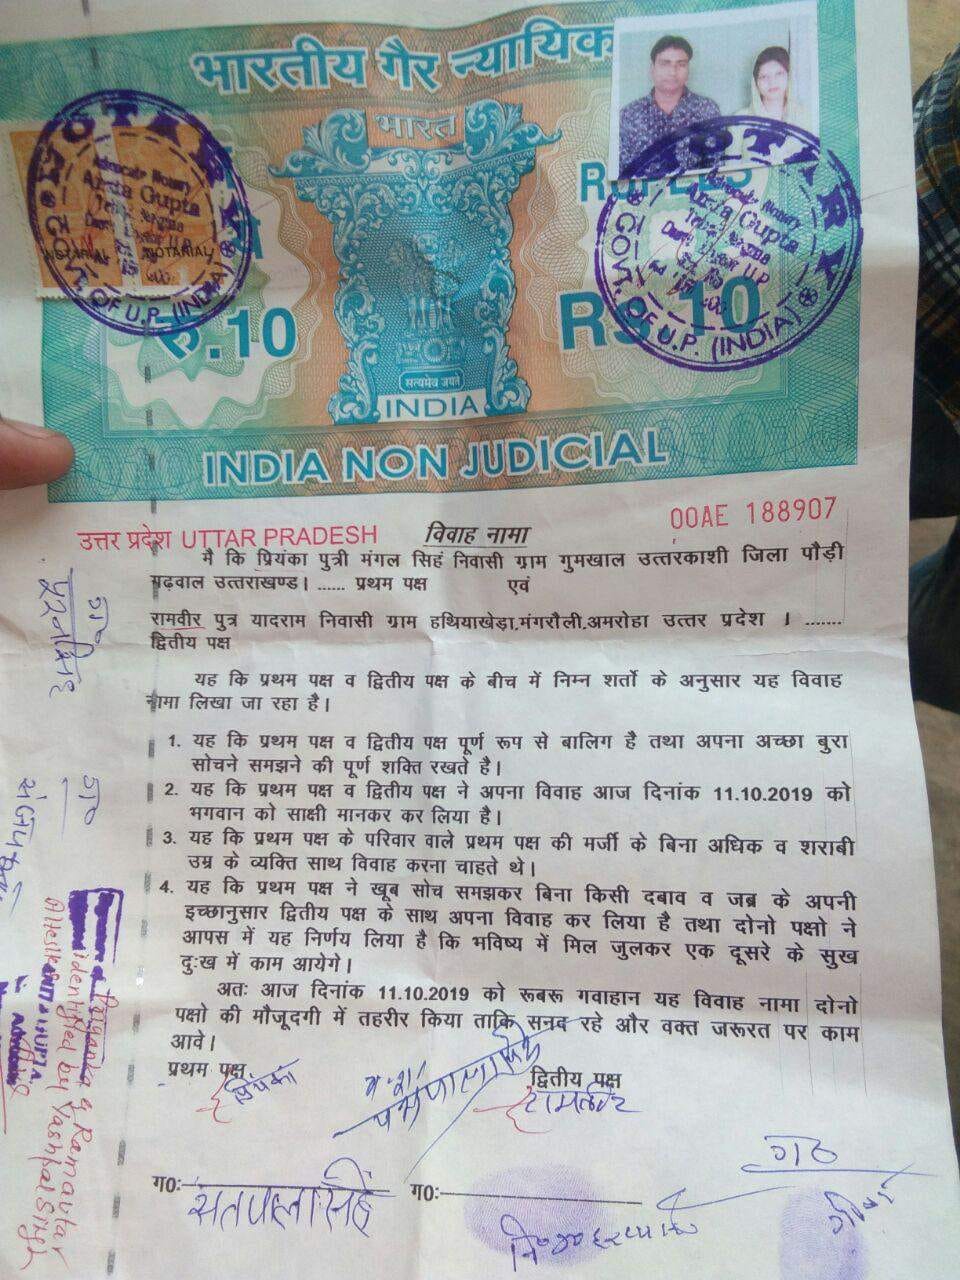 भारतीय गैर न्यायिक
भारत
RUPEES
रु.10
Rs.10
सत्यमेव जयते
INDIA
INDIA NON JUDICIAL
NOTARY
Advocate Notary
Gupta
GOVT. OF U.P. (INDIA)
NOTARIAL
NOTARY
Advocate Notary
Gupta
GOVT. OF U.P. (INDIA)
उत्तर प्रदेश UTTAR PRADESH
00AE 188907
विवाह नामा
मै कि प्रियंका पुत्री मंगल सिहं निवासी ग्राम गुमखाल उत्तरकाशी जिला पौड़ी
गढ़वाल उत्तराखण्ड। ...... प्रथम पक्ष एवं
रामवीर पुत्र यादराम निवासी ग्राम हथियाखेड़ा,मंगरौली,अमरोहा उत्तर प्रदेश । .......
द्वितीय पक्ष
यह कि प्रथम पक्ष व द्वितीय पक्ष के बीच में निम्न शर्तो के अनुसार यह विवाह
नामा लिखा जा रहा है।
1. यह कि प्रथम पक्ष व द्वितीय पक्ष पूर्ण रूप से बालिग है तथा अपना अच्छा बुरा
सोचने समझने की पूर्ण शक्ति रखते है।
2. यह कि प्रथम पक्ष व द्वितीय पक्ष ने अपना विवाह आज दिनांक 11.10.2019 को
भगवान को साक्षी मानकर कर लिया है।
3. यह कि प्रथम पक्ष के परिवार वाले प्रथम पक्ष की मर्जी के बिना अधिक व शराबी
उम्र के व्यक्ति साथ विवाह करना चाहते थे।
4. यह कि प्रथम पक्ष ने खूब सोच समझकर बिना किसी दबाव व जब्र के अपनी
इच्छानुसार द्वितीय पक्ष के साथ अपना विवाह कर लिया है तथा दोनो पक्षो ने
आपस में यह निर्णय लिया है कि भविष्य में मिल जुलकर एक दूसरे के सुख
दुःख में काम आयेगे।
अतः आज दिनांक 11.10.2019 को रूबरू गवाहान यह विवाह नामा दोनो
पक्षो की मौजूदगी में तहरीर किया ताकि सनद रहे और वक्त जरूरत पर काम
आवे।
प्रथम पक्ष
प्रियंका
द्वितीय पक्ष
रामवीर
ग०:
सतपाल सिंह
ग०:
Priyanka & Ramavtar
identified by Yashpal Singh